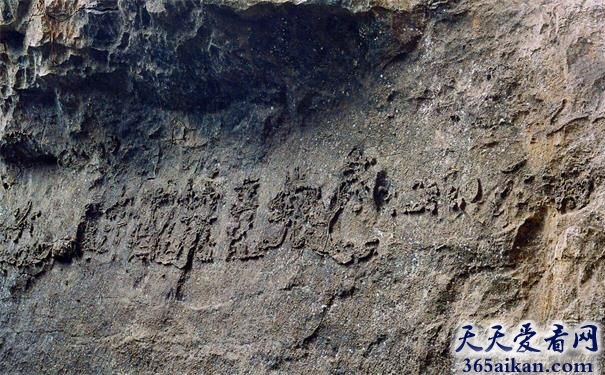 天天爱看网
365aikan.com